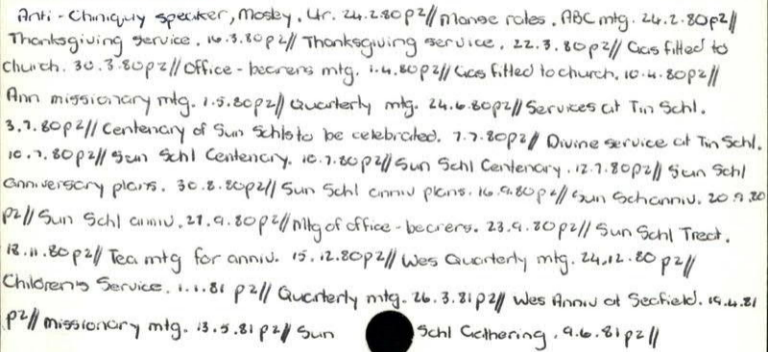 Anti-Chiniquy speaker, Mosley. Ur. 24.2.80 p2// Manse rates. ABC mtg. 24.2.80 p2//
Thanksgiving service. 16.3.80 p2// Thanksgiving service. 22.3.80 p2// Gas fitted to
church. 30.3.80 p2// Office-bearers mtg. 1.4.80 p2// Gas fitted to church. 10.4.80 p2//
Ann missionary mtg. 1.5.80 p2// Quarterly mtg. 24.6.80 p2// Services at Tin Schl.
3.7.80 p2// Centenary of Sun Schls to be celebrated. 7.7.80 p2// Divine service at Tin Schl.
10.7.80 p2// Sun Schl Centenary. 10.7.80 p2// Sun Schl Centenary. 12.7.80 p2// Sun Schl
anniversary plans. 30.8.80 p2// Sun Schl anniv plans. 16.9.80 p4// Sun Sch anniv. 20.9.80
p2// Sun Schl anniv. 21.9.80 p2// Mtg of office-bearers. 23.9.80 p2// Sun Schl Treat.
18.11.80 p2// Tea mtg for anniv. 15.12.80 p2// Wes Quarterly mtg. 24.12.80 p2//
Children's Service. 1.1.81 p2// Quarterly mtg. 26.3.81 p2// Wes Anniv at Seafield. 19.4.81
p2// missionary mtg. 13.5.81 p2// Sun Schl Gathering. 9.6.81 p2//